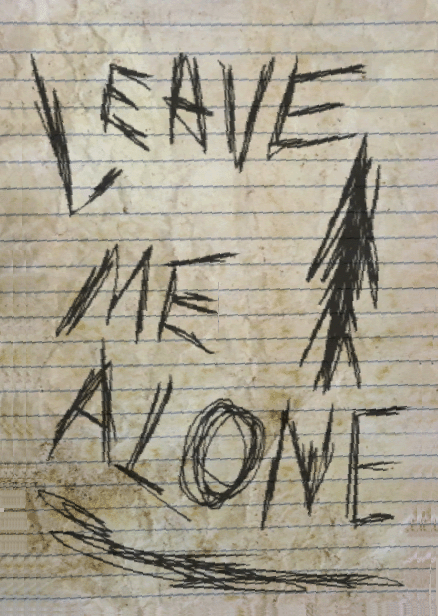 LEAVE
ME
ALONE